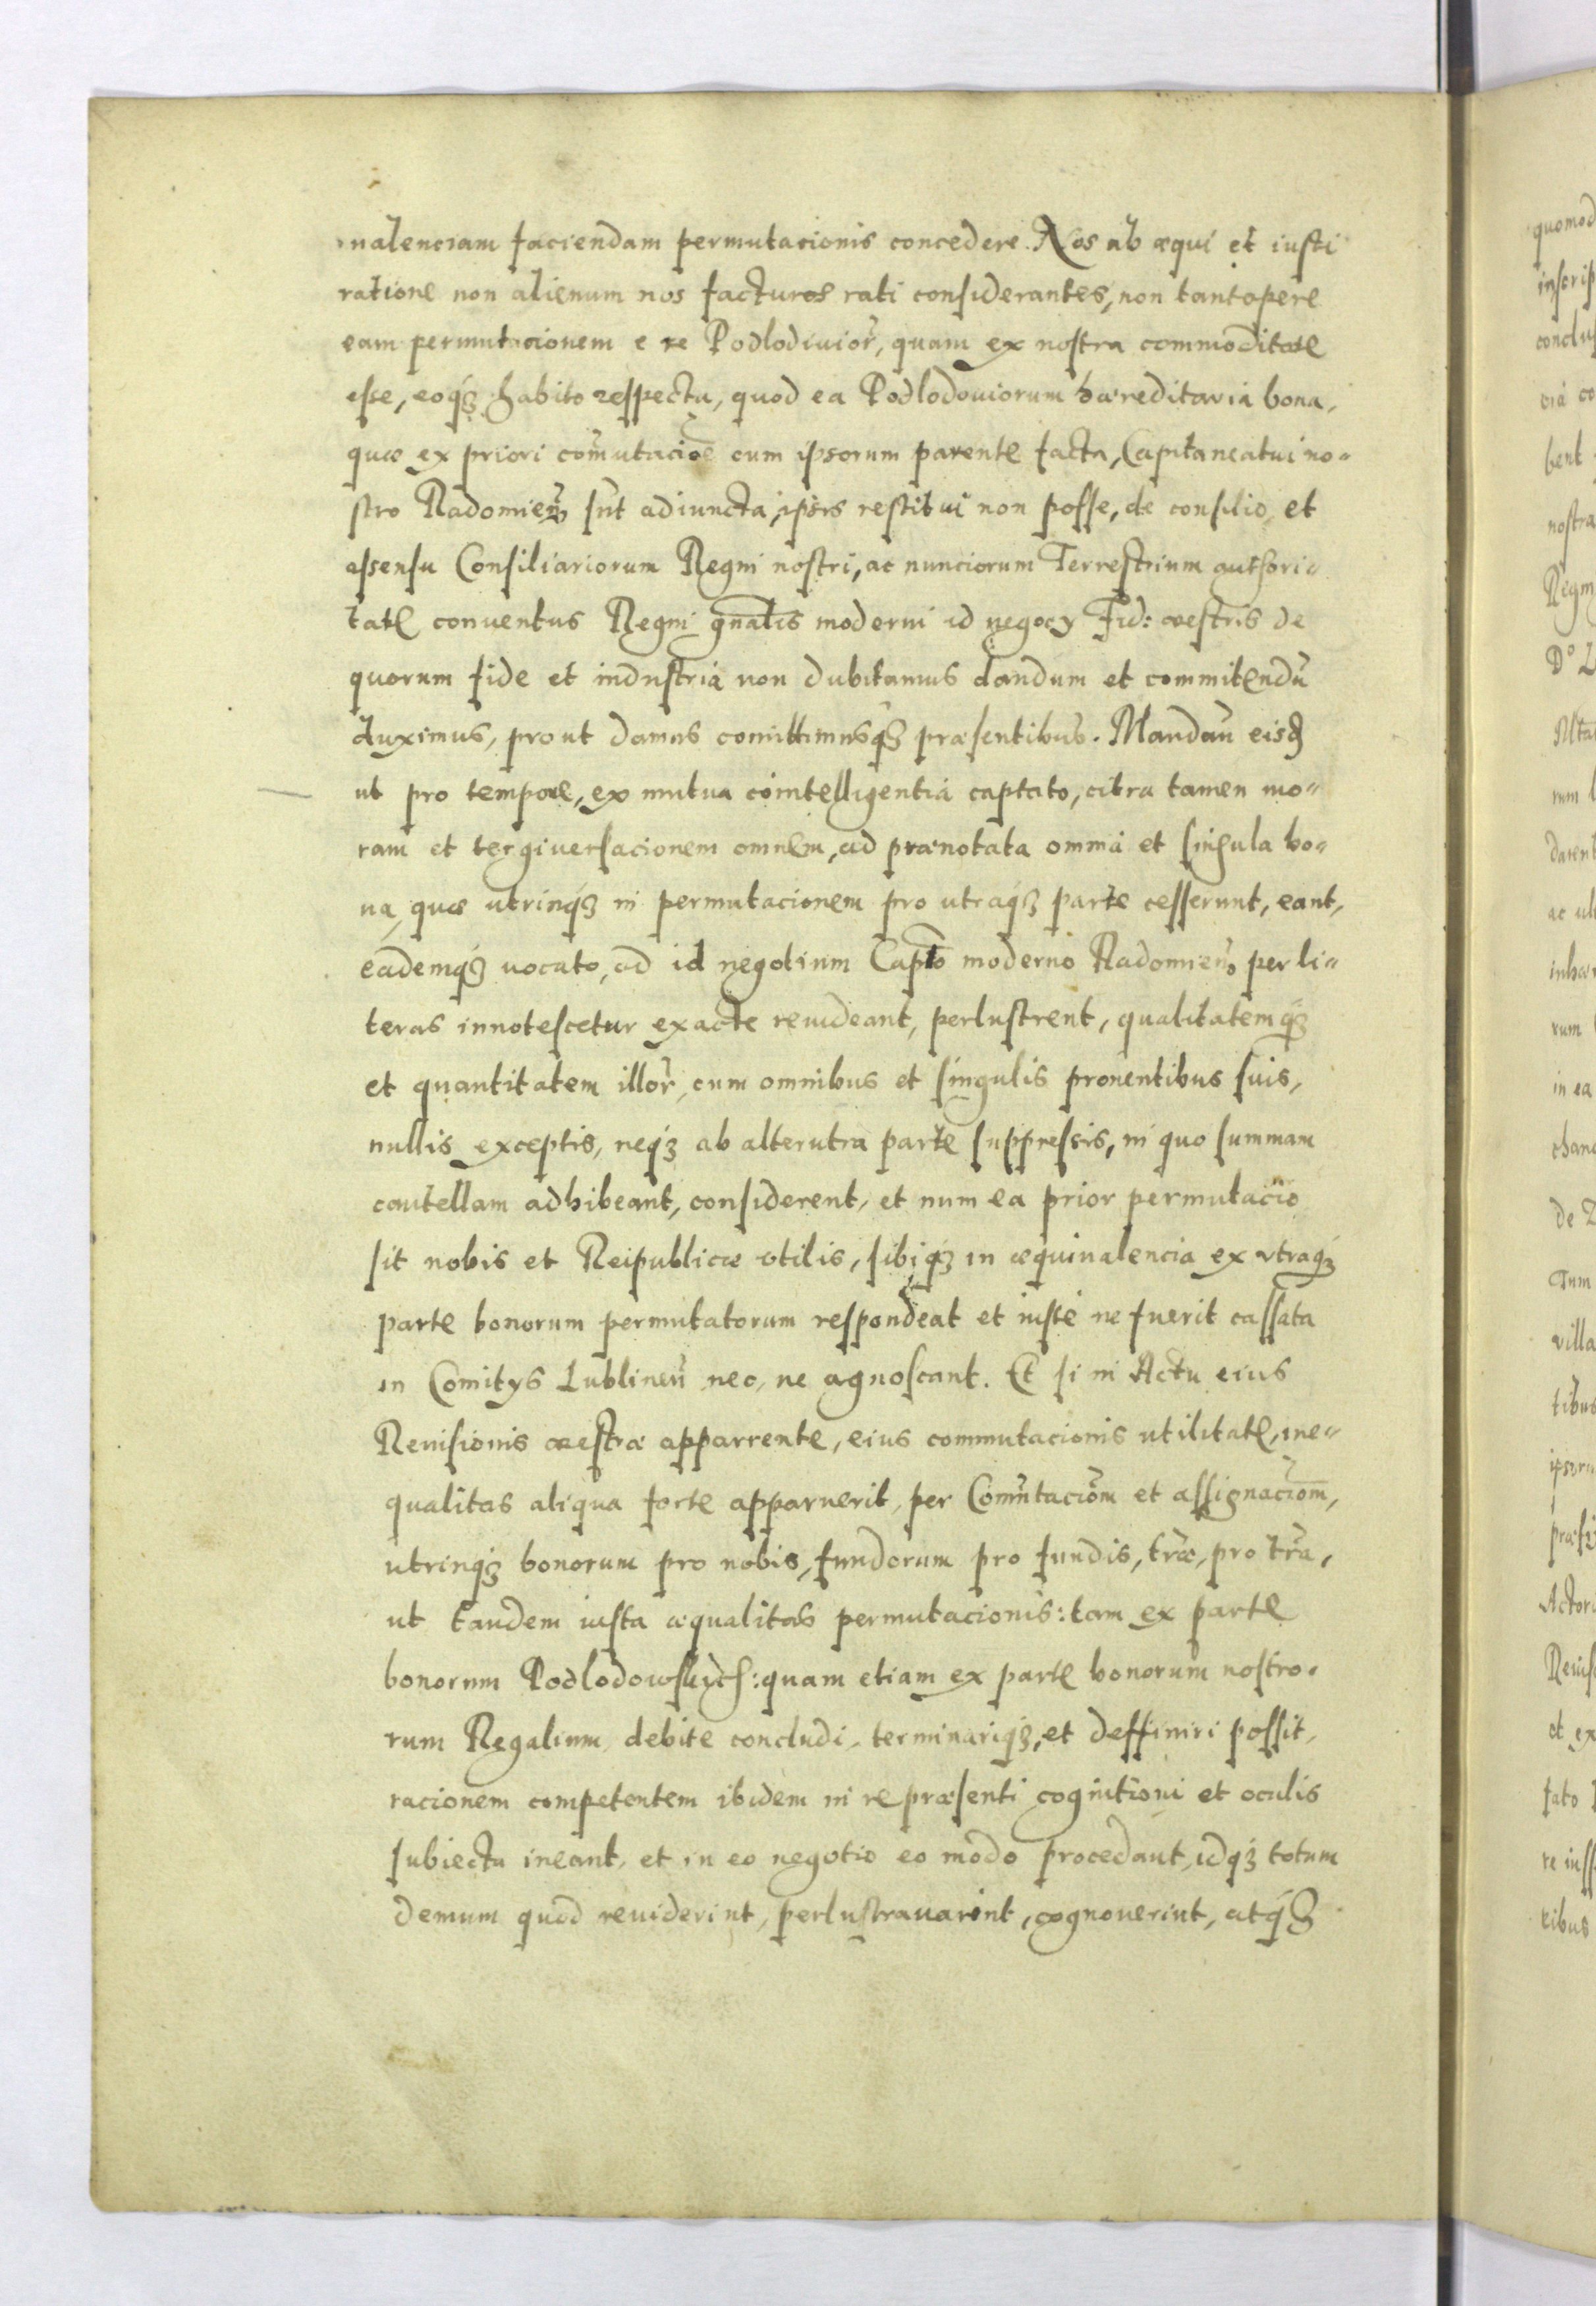 ualenciam faciendam permutacionis concedere. Nos ab æqui et iusti
ratione non alienum nos facturos rati considerantes, non tantopere
eam permutacionem e re Podlodiuior̃, quam ex nostra commoditate
esse, eoq́ꝫ habito respectu, quod ea Podlodouiorum hæreditaria bona,
quæ ex priori com̃utacio͠e cum ipsorum parente facta, Capitaneatui no=
stro Radomieñ sũt adiuncta, ipsis restitui non posse, de consilio et
assensu Consiliariorum Regni nostri, ac nunciorum Terrestrium authori=
tate conuentus Regni gñalis moderni id negocÿ Fid: vestris de
quorum fide et industria non dubitamus dandum et commitendũ
duximus, prout damus comittimusq́ꝫ præsentibus. Mandam̃ eisd
ut pro tempore, ex mutua cointelligentia captato, citra tamen mo=
ram et tergiuersacionem omnem, ad prænotata omnia et singula bo=
na, quæ utrinq́ꝫ in permutacionem pro utraq́ꝫ parte cesserunt, eant,
eademq́ꝫ uocato, ad id negotium Capto moderno Radomieñ, per li=
teras innotescetur exacte reuideant, perlustrent, qualitatemq́ꝫ
et quantitatem illor̃, cum omnibus et singulis prouentibus suis,
nullis exceptis, neq́ꝫ ab alterutra parte suppressis, in quo summam
cautellam adhibeant, considerent, et num ea prior permutacio
sit nobis et Reipublicæ vtilis, sibiq́ꝫ in æquiualencia ex vtraq́ꝫ
parte bonorum permutatorum respondeat et iuste ne fuerit cassata
in Comitÿs Lublineñ nec, ne agnoscant. Et si in Actu eius
Reuisionis vestræ apparrente, eius commutacionis utilitate, ine=
qualitas aliqua forte apparuerit, per Com̃utaciõm et assignaciõm,
utrinq́ꝫ bonorum pro nobis, fundorum pro fundis, tr̃æ, pro tr̃a,
ut tandem iusta æqualitas permutacionis: tam ex parte
bonorum Podlodowskich: quam etiam ex parte bonorum nostro=
rum Regalium debite concludi, terminariq́ꝫ, et deffiniri possit,
racionem competentem ibidem in re præsenti cognitioni et oculis
subiecta ineant, et in eo negotio eo modo procedant, idq́ꝫ totum
demum quod reuiderint, perlustrauarint, cognouerint, atq́ꝫ